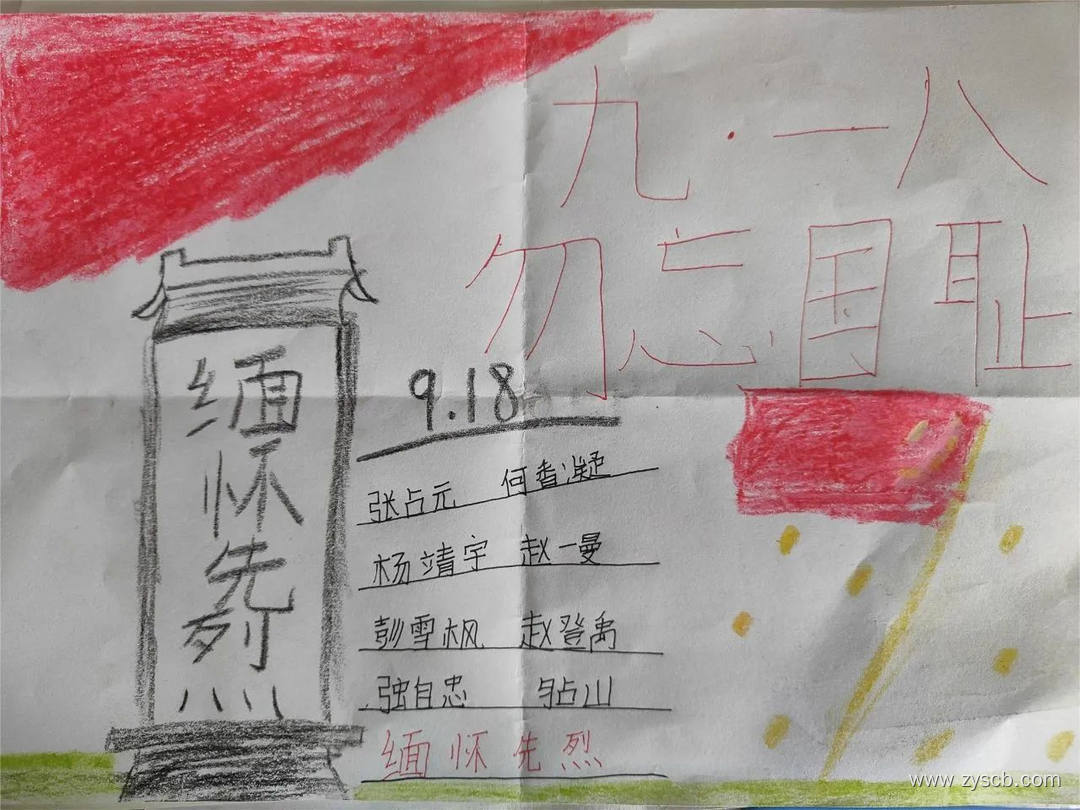 九·一八
勿忘国耻
缅怀先烈
9.18
张占元 何香凝
杨靖宇 赵一曼
彭雪枫 赵登禹
张自忠
缅怀先烈
www.zyscb.com